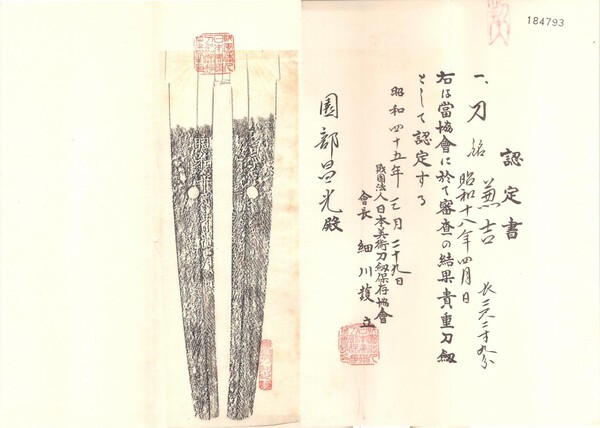 184793
認定書
一、刀 銘 兼吉 長二尺二寸九分
昭和十八年四月日
右は當協會に於て審査の結果貴重刀劔
として認定する
昭和四十五年三月二十九日
財團法人日本美術刀劔保存協會
會長 細川護立
園部昌光殿